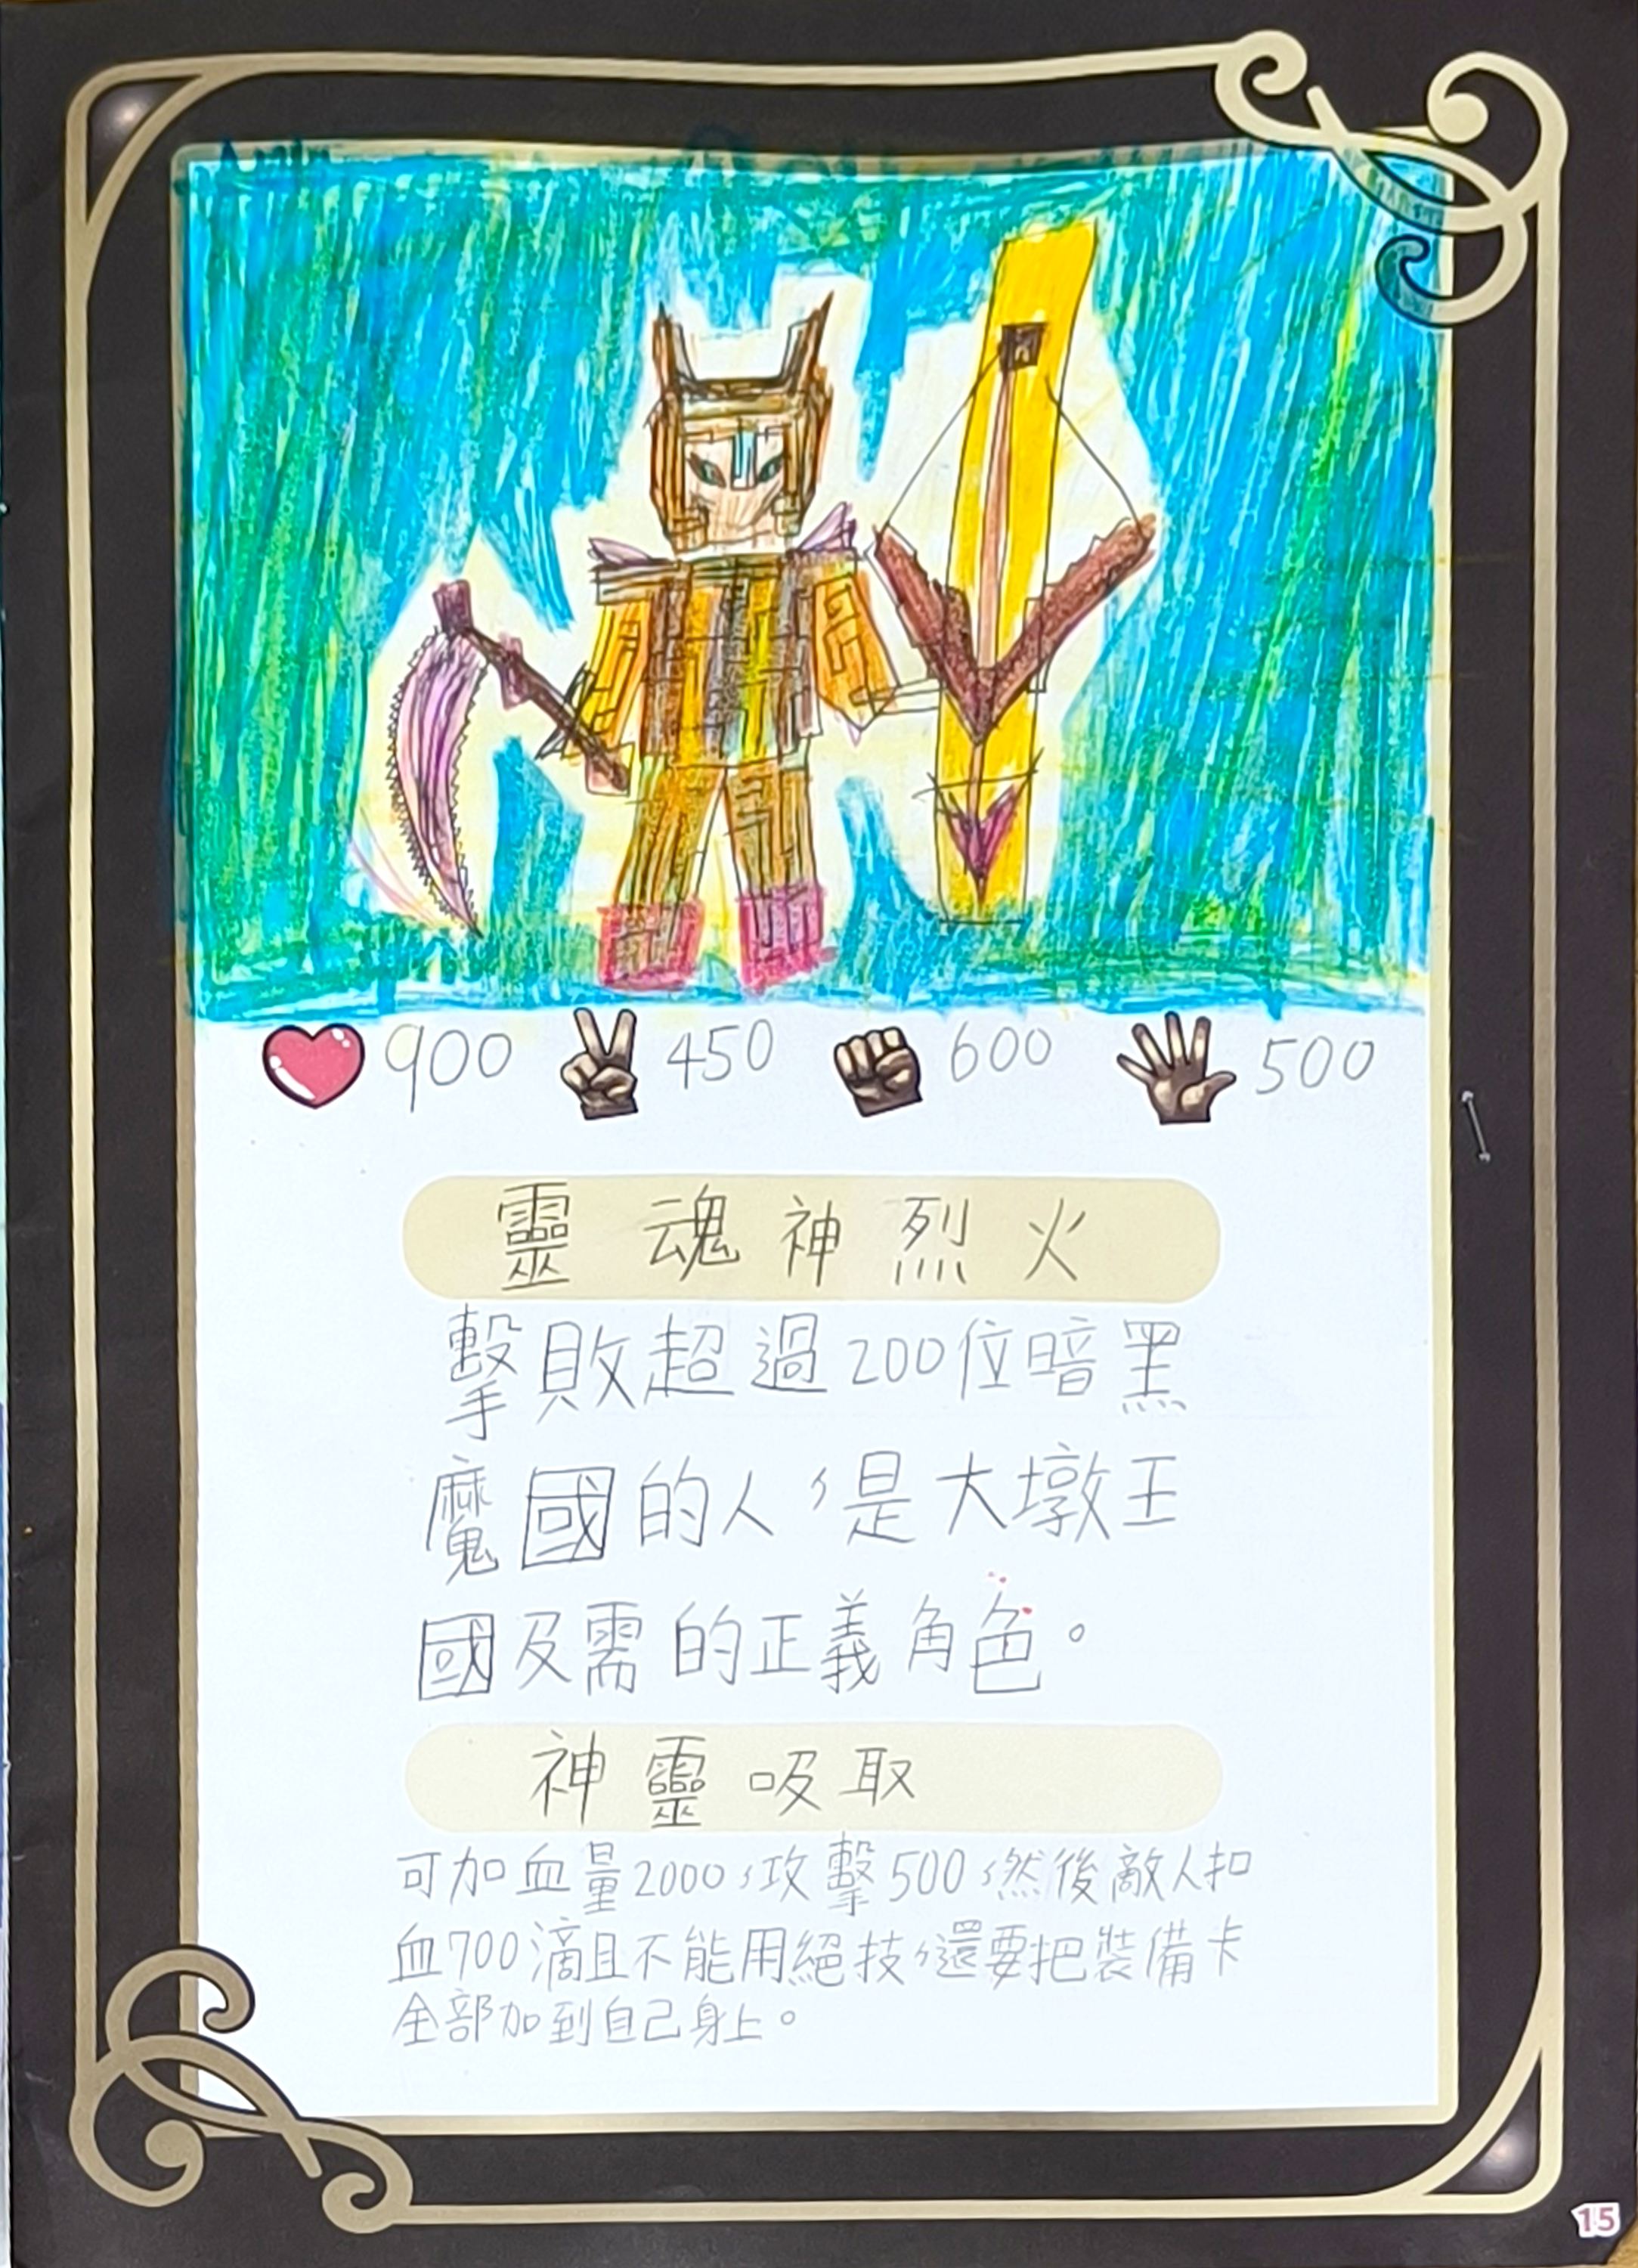 900 450 600 500
靈魂神烈火
擊敗超過200位暗黑
魔國的人，是大墩王
國及需的正義角色。
神靈吸取
可加血量2000，攻擊500，然後敵人扣
血700滴且不能用絕技，還要把裝備卡
全部加到自己身上。
15